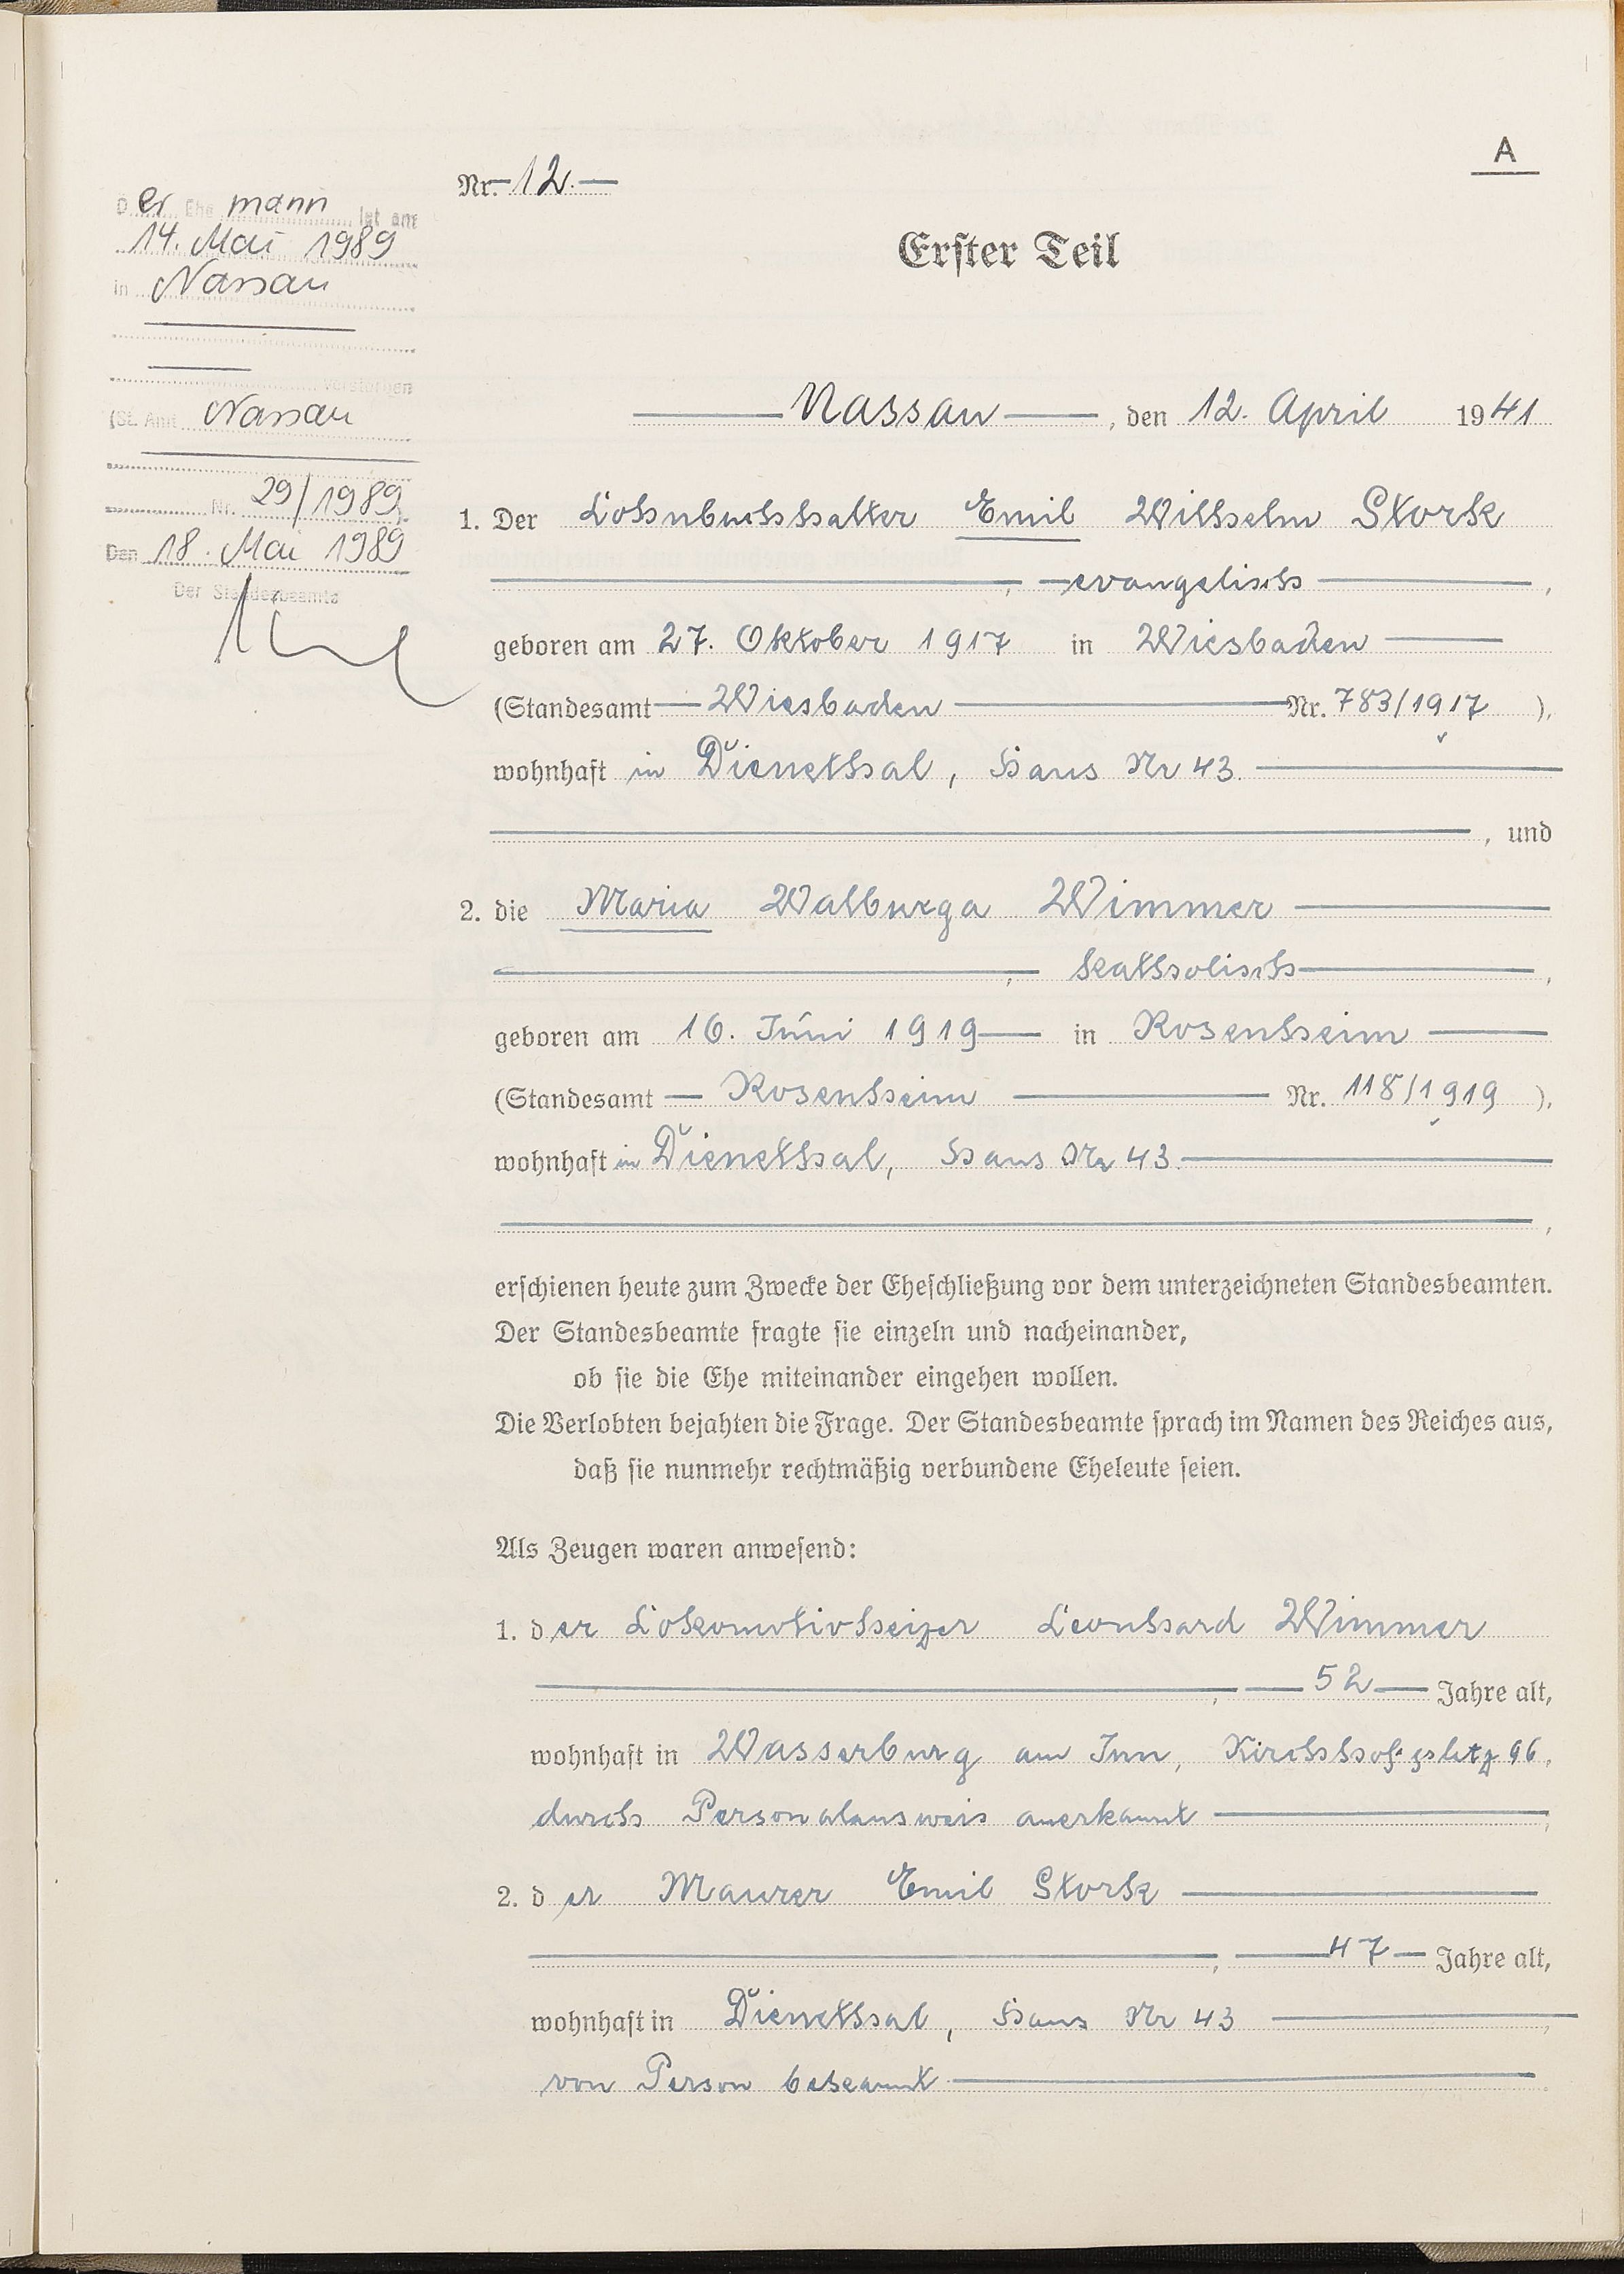 A
Nr. 12.
Erster Teil
Nassau, den 12. April 1941
1. Der Lohnbuchhalter Emil Wilhelm Stork
, evangelisch,
geboren am 27. Oktober 1917 in Wiesbaden
(Standesamt Wiesbaden Nr. 783/1917),
wohnhaft in Dienethal, Haus Nr 43.
, und
2. die Maria Walburga Wimmer
, katholisch,
geboren am 16. Juni 1919 in Rosenheim
(Standesamt Rosenheim Nr. 118/1919),
wohnhaft in Dienethal, Haus Nr 43.
,
erschienen heute zum Zwecke der Eheschließung vor dem unterzeichneten Standesbeamten.
Der Standesbeamte fragte sie einzeln und nacheinander,
ob sie die Ehe miteinander eingehen wollen.
Die Verlobten bejahten die Frage. Der Standesbeamte sprach im Namen des Reiches aus,
daß sie nunmehr rechtmäßig verbundene Eheleute seien.
Als Zeugen waren anwesend:
1. der Lokomotivheizer Leonhard Wimmer
, 52 Jahre alt,
wohnhaft in Wasserburg am Inn, Kirchhofsplatz,
durch Personalausweis anerkannt,
2. der Maurer Emil Stork
, 47 Jahre alt,
wohnhaft in Dienethal, Haus Nr 43,
von Person bekannt.
Der Ehemann ist am
14. Mai 1989
in Nassau
verstorben
(St. Amt Nassau
Nr. 29/1989)
Den 18. Mai 1989
Der Standesbeamte